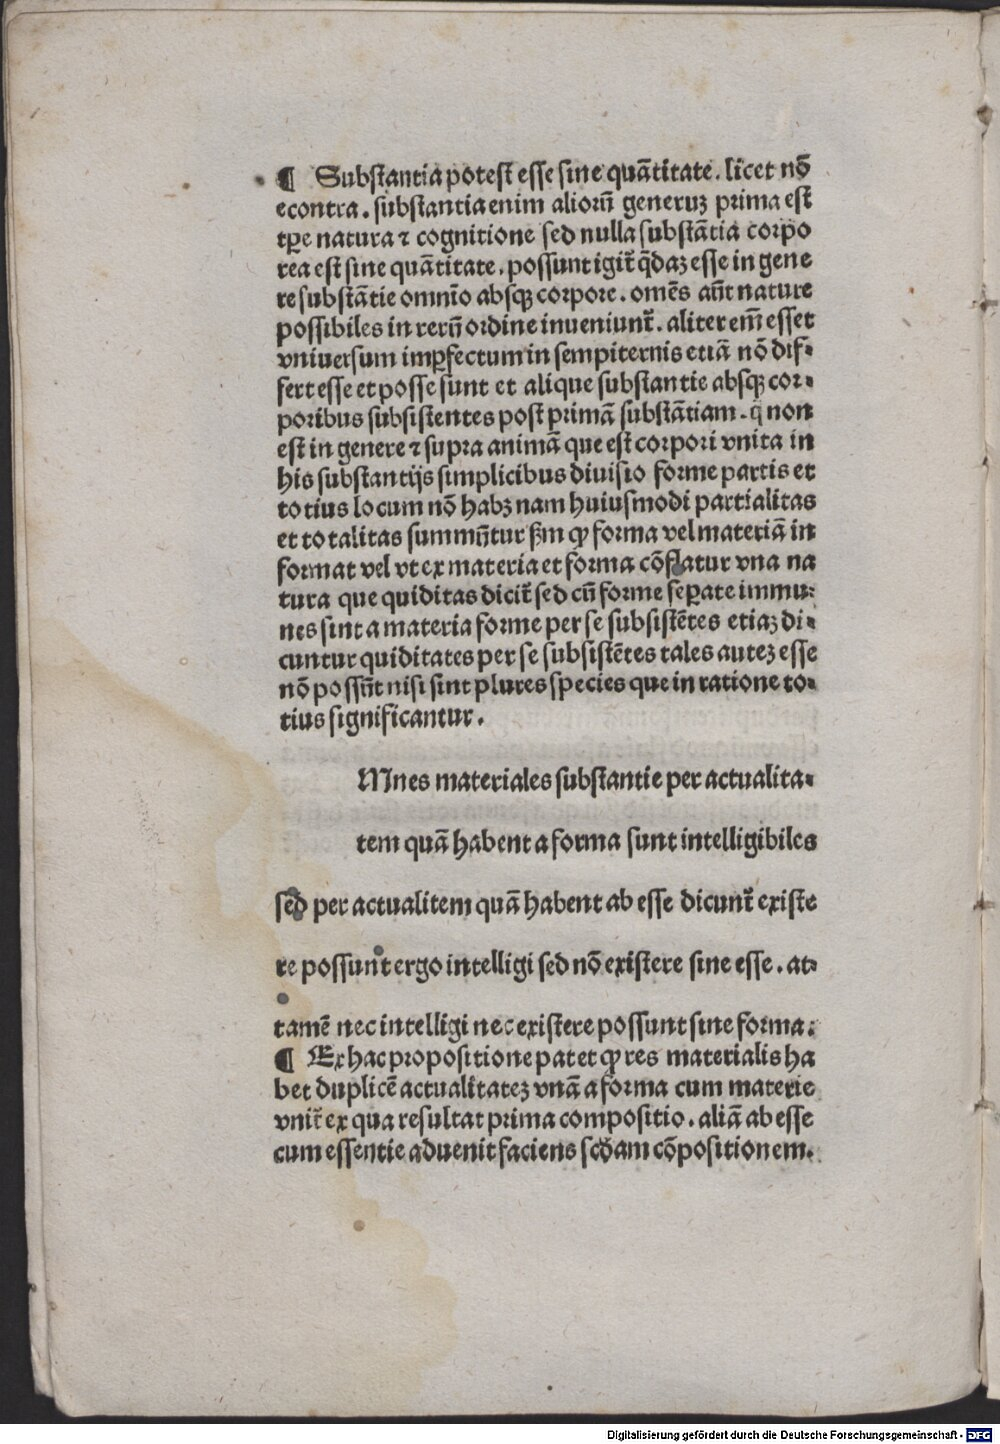 ¶ Substantia potest esse sine quātitate. licet nō
econtra. substantia enim alioꝝ̄ generuꝫ prima est
tꝑe natura ⁊ cognitione sed nulla substātia corpo
rea est sine quātitate. possunt igit̃ q̄daꝫ esse in gene
re substātie omnīo absqꝫ corpore. omēs aūt nature
possibiles in rerū ordine inueniunt̃. aliter em̄ esset
vniuersum imꝑfectum in sempiternis etiā nō dif⸗
fert esse et posse sunt et alique substantie absqꝫ cor⸗
poribus subsistentes post primā substātiam. q̄ non
est in genere ⁊ supra animā que est corpori vnita in
his substantijs simplicibus diuisio forme partis et
totius locum nō habꝫ nam huiusmodi partialitas
et totalitas summūtur ẜm ꝙ forma vel materiā in
format vel vt ex materia et forma cōflatur vna na
tura que quiditas dicit̃ sed cū forme seꝑate immu⸗
nes sint a materia forme per se subsistētes etiaꝫ di⸗
cuntur quiditates per se subsistētes tales auteꝫ esse
nō possūt nisi sint plures species que in ratione to⸗
tius significantur.
Mnes materiales substantie per actualita⸗
tem quā habent a forma sunt intelligibiles
sed per actualitem quā habent ab esse dicunt̃ existe
re possunt ergo intelligi sed nō existere sine esse. at⸗
tamē nec intelligi nec existere possunt sine forma.
¶ Ex hac propositione patet ꝙ res materialis ha
bet duplicē actualitateꝫ vnā a forma cum materie
vnit̃ ex qua resultat prima compositio. aliā ab esse
cum essentie aduenit faciens scd̄am cōpositionem.
Digitalisierung gefördert durch die Deutsche Forschungsgemeinschaft - DFG